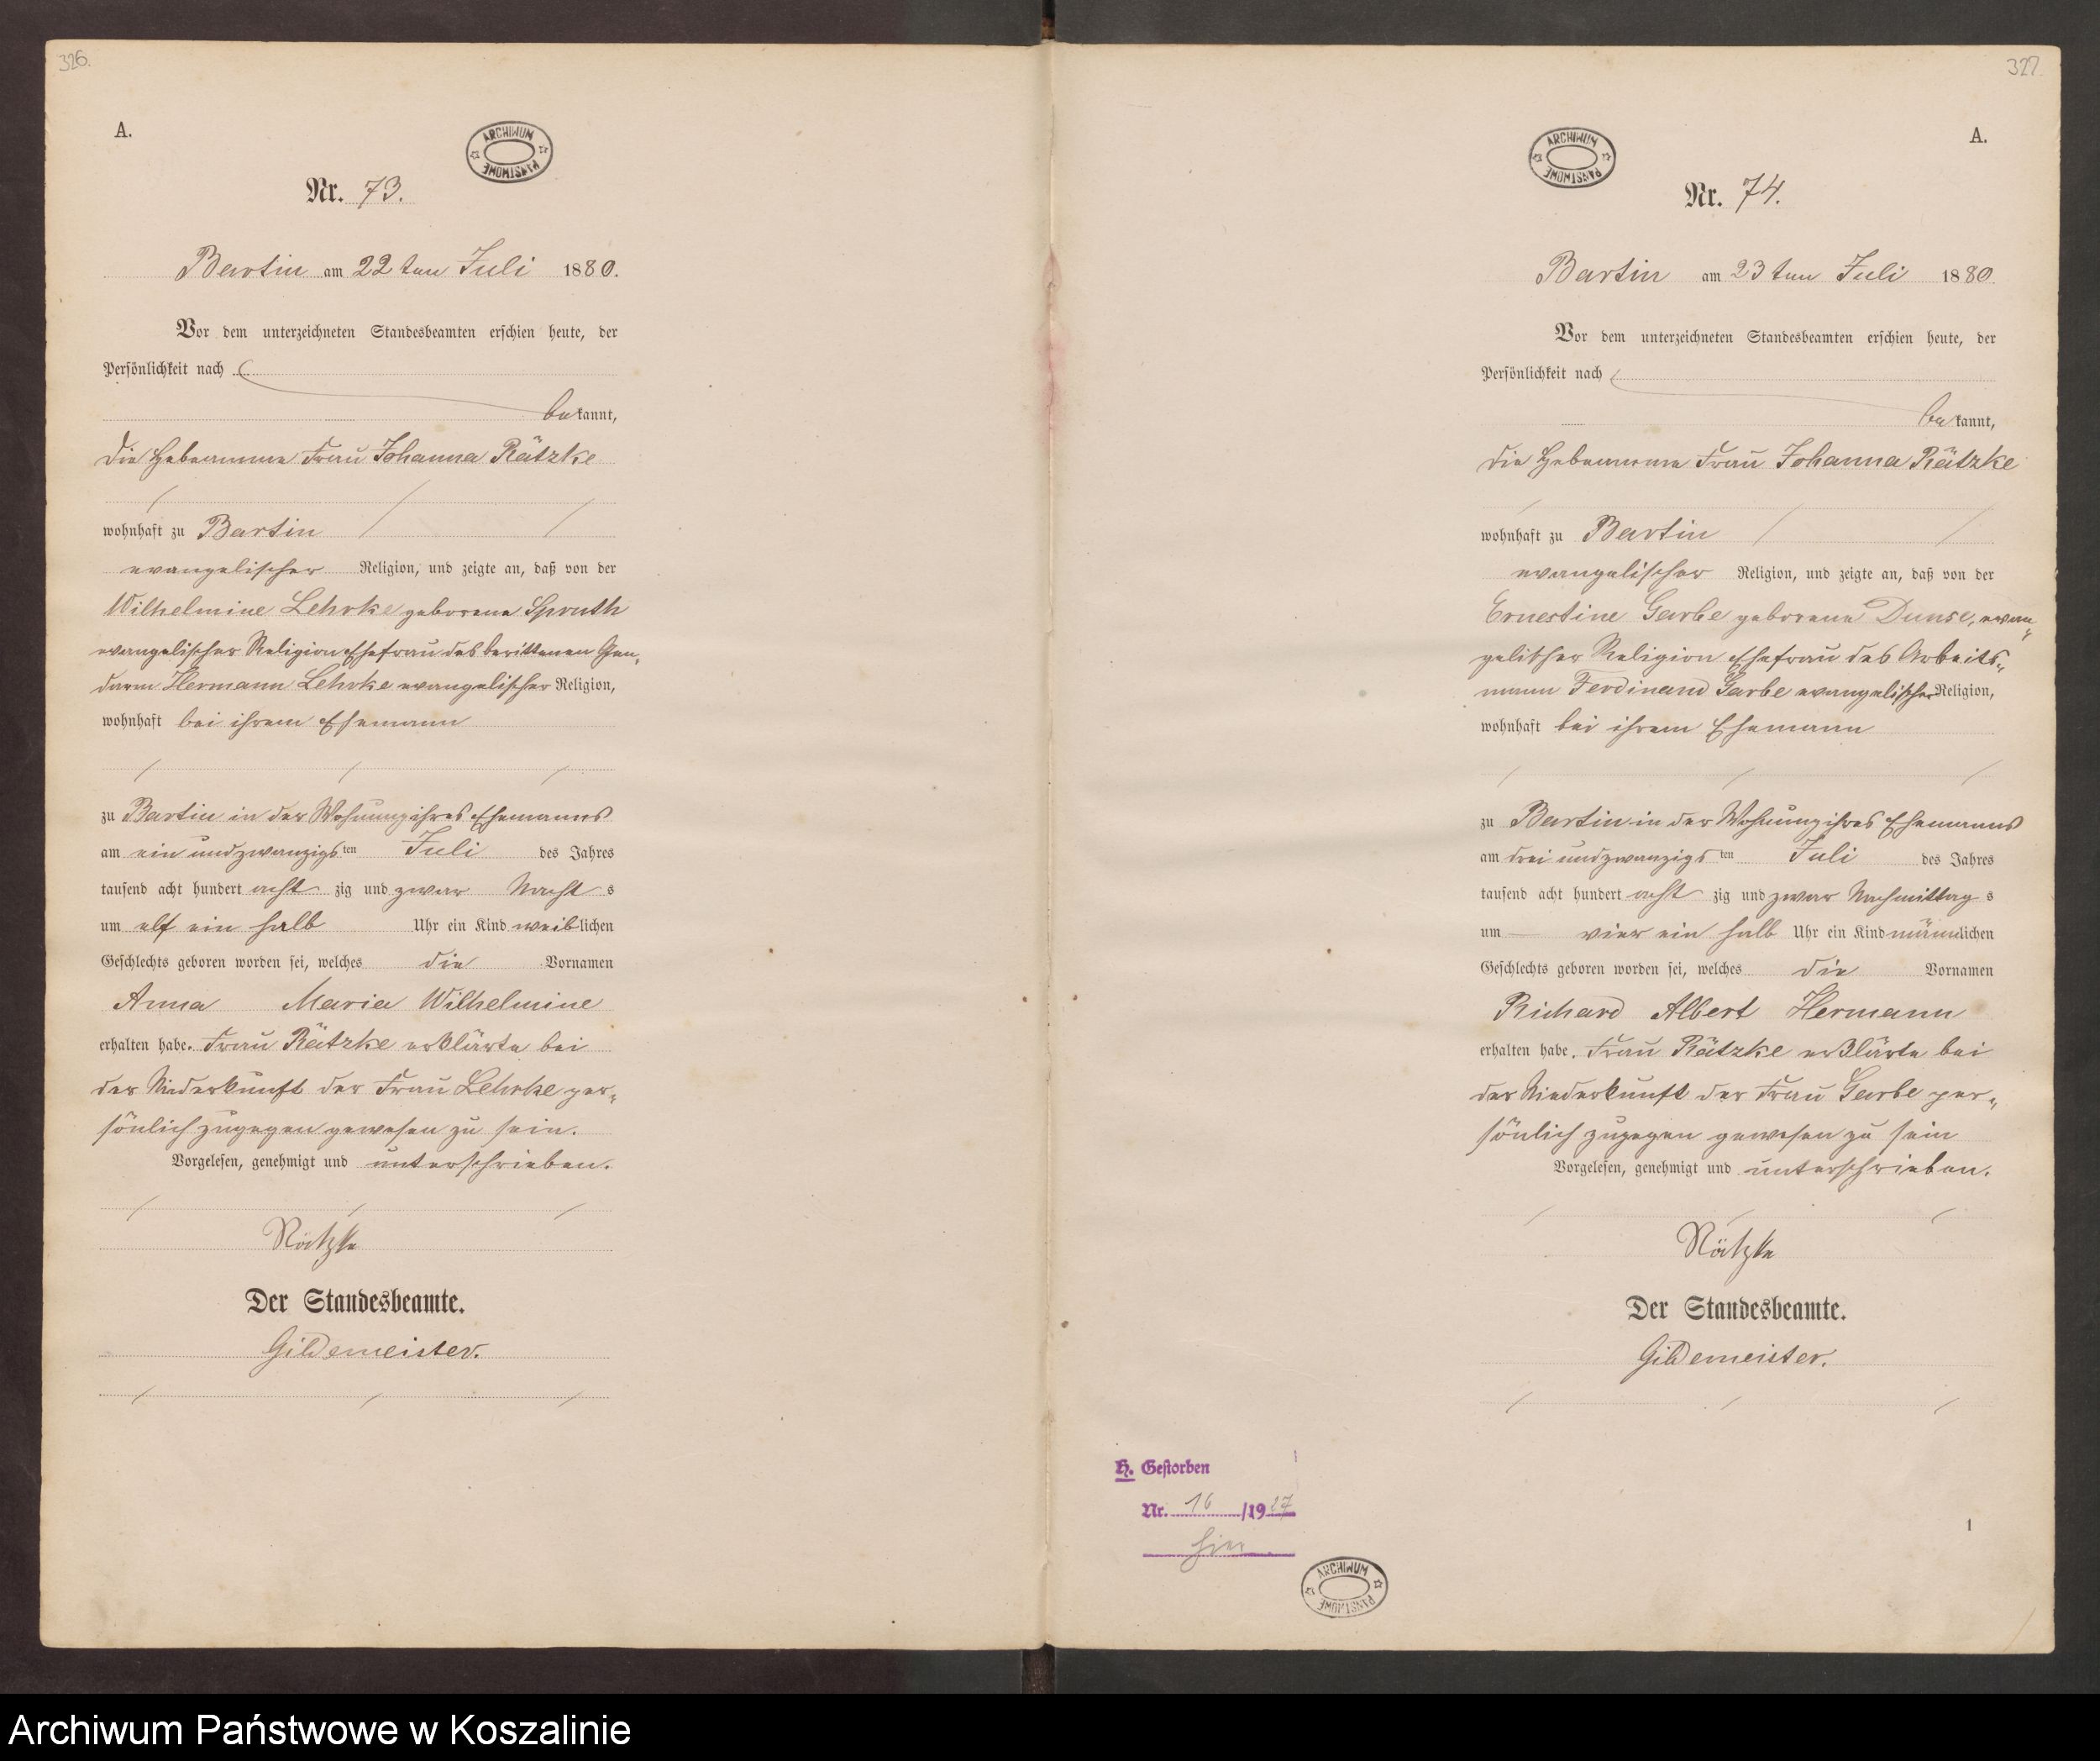 326.
A.
ARCHIWUM PAŃSTWOWE
Nr. 73.
Bartin am 22ten Juli 1880.
Vor dem unterzeichneten Standesbeamten erschien heute, der
Persönlichkeit nach
bekannt,
die Hebeamme Frau Johanna Rätzke
wohnhaft zu Bartin
evangelischer Religion, und zeigte an, daß von der
Wilhelmine Lehrke geborene Spruth
evangelischer Religion Ehefrau des berittenen Gen„
darm Hermann Lehrke evangelischer Religion,
wohnhaft bei ihrem Ehemann
zu Bartin in der Wohnung ihres Ehemanns
am ein und zwanzigsten Juli des Jahres
tausend acht hundert achtzig und zwar Nachts
um elf ein halb Uhr ein Kind weiblichen
Geschlechts geboren worden sei, welches die Vornamen
Anna Maria Wilhelmine
erhalten habe. Frau Rätzke erklärte bei
der Niederkunft der Frau Lehrke per„
sönlich zugegen gewesen zu sein.
Vorgelesen, genehmigt und unterschrieben.
Rätzke
Der Standesbeamte.
Gildemeister.
327.
A.
ARCHIWUM PAŃSTWOWE
Nr. 74.
Bartin am 23ten Juli 1880.
Vor dem unterzeichneten Standesbeamten erschien heute, der
Persönlichkeit nach
bekannt,
die Hebeamme Frau Johanna Rätzke
wohnhaft zu Bartin
evangelischer Religion, und zeigte an, daß von der
Ernestine Garbe geborene Dunse, evan„
gelischer Religion Ehefrau des Arbeits„
mann Ferdinand Garbe evangelischer Religion,
wohnhaft bei ihrem Ehemann
zu Bartin in der Wohnung ihres Ehemanns
am drei und zwanzigsten Juli des Jahres
tausend acht hundert achtzig und zwar Nachmittags
um vier ein halb Uhr ein Kind männlichen
Geschlechts geboren worden sei, welches die Vornamen
Richard Albert Hermann
erhalten habe. Frau Rätzke erklärte bei
der Niederkunft der Frau Garbe per„
sönlich zugegen gewesen zu sein
Vorgelesen, genehmigt und unterschrieben.
Rätzke
Der Standesbeamte.
Gildemeister.
H. Gestorben
Nr. 16 /1927
hier
ARCHIWUM PAŃSTWOWE
Archiwum Państwowe w Koszalinie